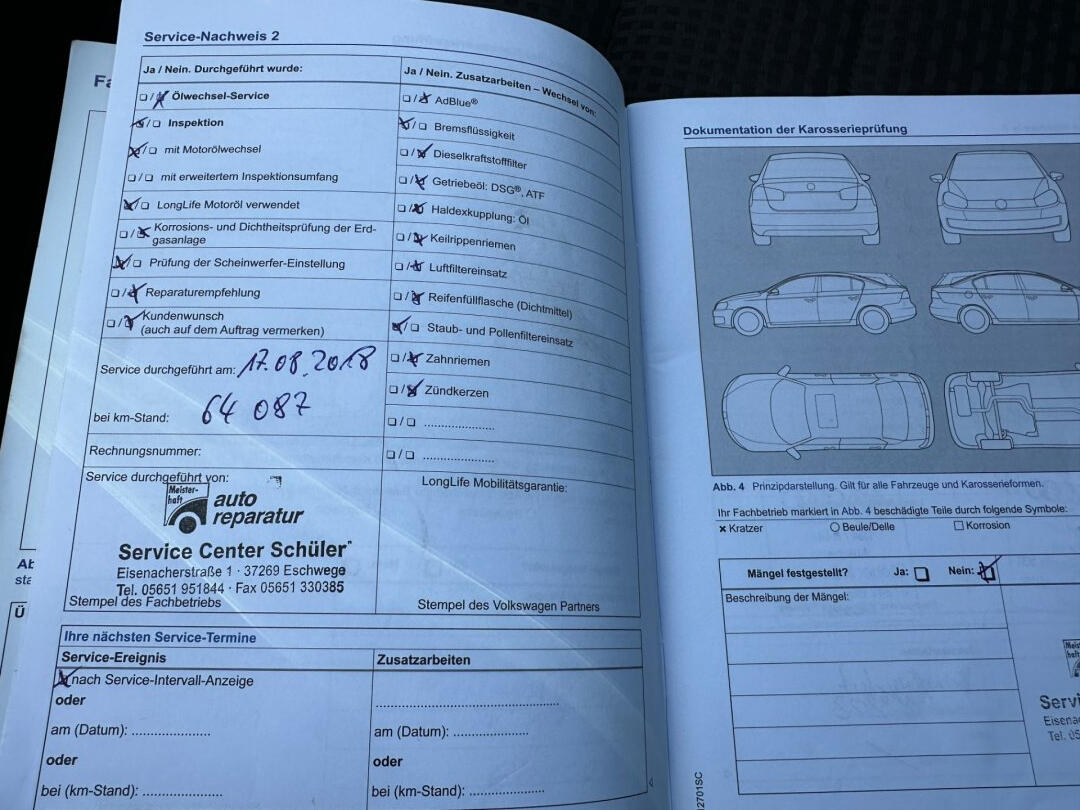 Fa
Service-Nachweis 2
Ja / Nein. Durchgeführt wurde:
Ölwechsel-Service
Inspektion
mit Motorölwechsel
mit erweitertem Inspektionsumfang
LongLife Motoröl verwendet
Korrosions- und Dichtheitsprüfung der Erd-
gasanlage
Prüfung der Scheinwerfer-Einstellung
Reparaturempfehlung
Kundenwunsch
(auch auf dem Auftrag vermerken)
Service durchgeführt am: 17.08.2018
bei km-Stand: 64 087
Rechnungsnummer:
Service durchgeführt von:
Meister-
haft
auto
reparatur
Service Center Schüler
Eisenacherstraße 1 · 37269 Eschwege
Tel. 05651 951844 · Fax 05651 330385
Stempel des Fachbetriebs
Ja / Nein. Zusatzarbeiten – Wechsel von:
AdBlue®
Bremsflüssigkeit
Dieselkraftstofffilter
Getriebeöl: DSG®, ATF
Haldexkupplung: Öl
Keilrippenriemen
Luftfiltereinsatz
Reifenfüllflasche (Dichtmittel)
Staub- und Pollenfiltereinsatz
Zahnriemen
Zündkerzen
LongLife Mobilitätsgarantie:
Stempel des Volkswagen Partners
Ihre nächsten Service-Termine
Service-Ereignis
nach Service-Intervall-Anzeige
oder
am (Datum): ....................
oder
bei (km-Stand): ....................
Zusatzarbeiten
am (Datum): ....................
oder
bei (km-Stand): ....................
Ab
sta
Ü
Dokumentation der Karosserieprüfung
Abb. 4 Prinzipdarstellung. Gilt für alle Fahrzeuge und Karosserieformen.
Ihr Fachbetrieb markiert in Abb. 4 beschädigte Teile durch folgende Symbole:
× Kratzer ○ Beule/Delle □ Korrosion
Mängel festgestellt? Ja: Nein:
Beschreibung der Mängel:
Meis
haf
Servi
Eisena
Tel. 05
12701SC